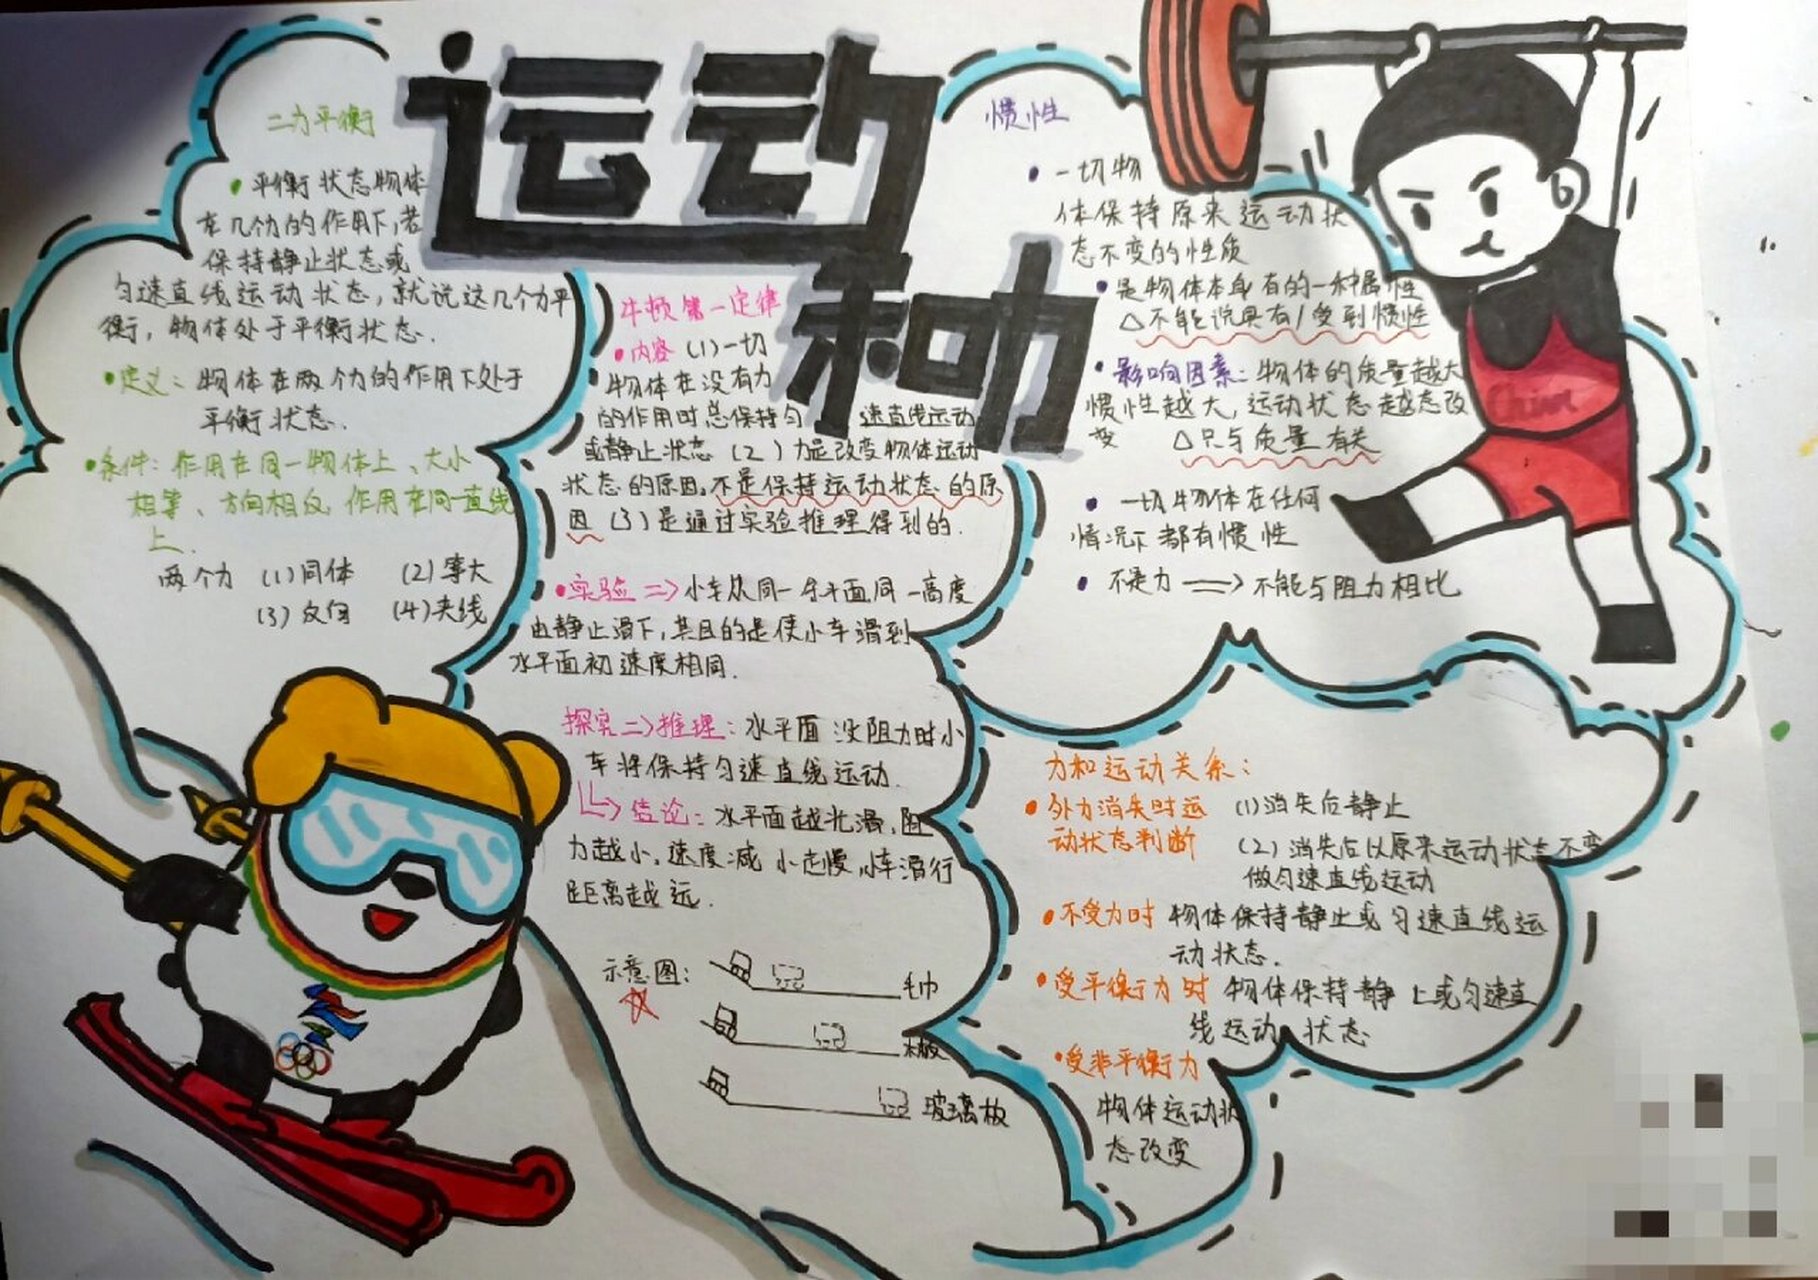 运动
和力
二力平衡
平衡状态物体
在几个力的作用下,若
保持静止状态或
匀速直线运动状态,就说这几个力平
衡,物体处于平衡状态.
定义:物体在两个力的作用下处于
平衡状态.
条件:作用在同一物体上、大小
相等、方向相反、作用在同一直线
上.
两个力 (1)同体 (2)等大
(3)反向 (4)共线
牛顿第一定律
内容(1)一切
物体在没有力
的作用时总保持匀速直线运动
或静止状态(2)力是改变物体运动
状态的原因。不是保持运动状态的原
因(3)是通过实验推理得到的.
实验=>小车从同一斜面同一高度
由静止滑下,其目的是使小车滑到
水平面初速度相同.
探究=>推理:水平面没阻力时小
车将保持匀速直线运动.
=>结论:水平面越光滑,阻
力越小,速度减小越慢,小车滑行
距离越远.
示意图:
毛巾
木板
玻璃板
惯性
一切物
体保持原来运动状
态不变的性质
是物体本身有的一种属性
△不能说具有/受到惯性
影响因素:物体的质量越大
惯性越大,运动状态越态改
变 △只与质量有关
一切物体在任何
情况下都有惯性
不是力=>不能与阻力相比
China
力和运动关系:
外力消失时运 (1)消失后静止
动状态判断 (2)消失后以原来运动状态不变
做匀速直线运动
不受力时 物体保持静止或匀速直线运
动状态.
受平衡力时 物体保持静止或匀速直
线运动状态
受非平衡力
物体运动状
态改变